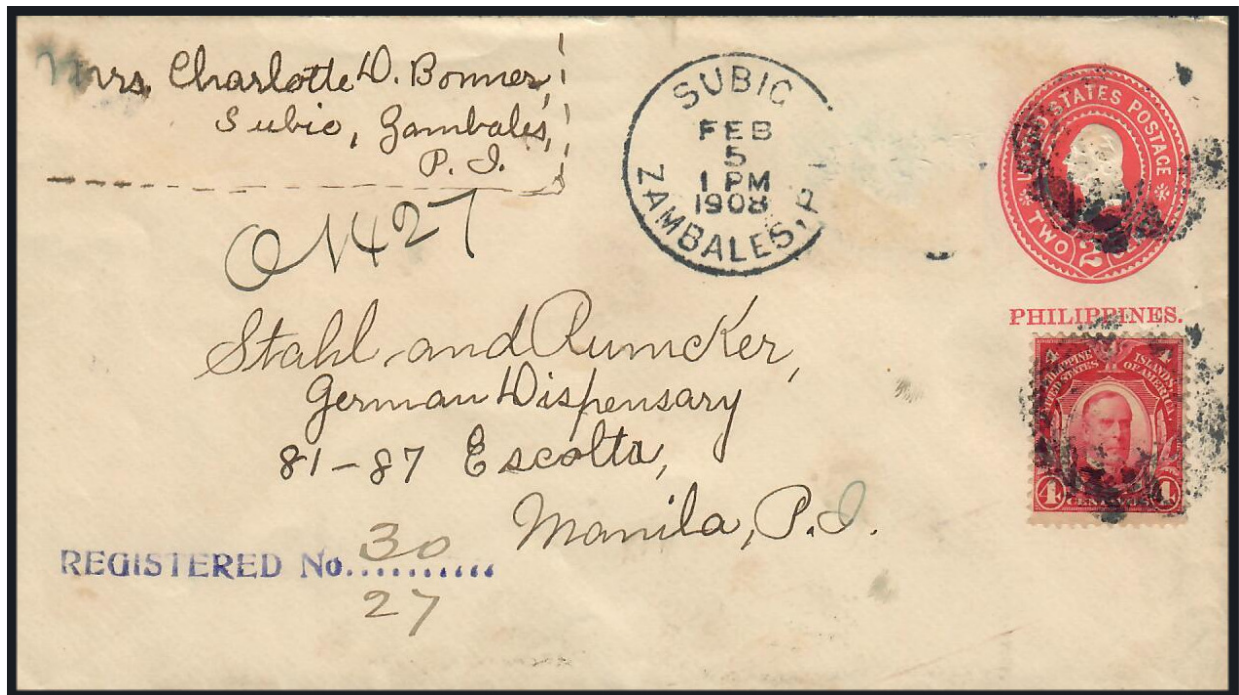 Mrs. Charlotte D. Bonner,
Subic, Zambales,
P. I.
SUBIC
FEB
5
1 PM
1908
ZAMBALES, P
UNITED STATES POSTAGE
TWO 2
PHILIPPINES.
4 4
PHILIPPINE ISLANDS
UNITED STATES OF AMERICA
4 CENTAVOS 4
1427
Stahl and Rumcker,
German Dispensary
81-87 Escolta,
Manila, P.I.
REGISTERED No. 30
27